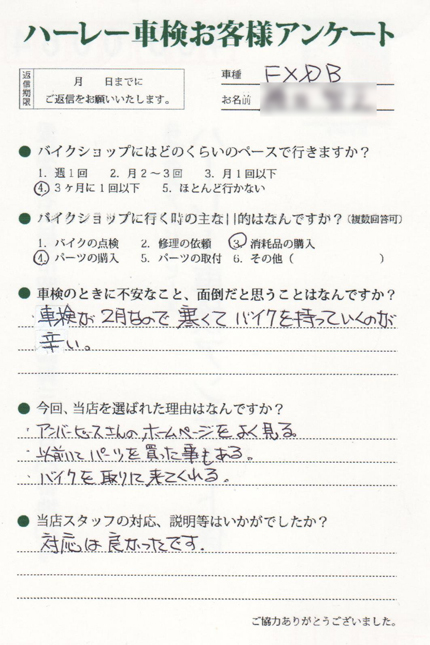 ハーレー車検お客様アンケート
返信期限
月　日までに
ご返信をお願いいたします。
車種 FXDB
お名前
● バイクショップにはどのくらいのペースで行きますか？
1. 週1回　2. 月2～3回　3. 月1回以下
④. 3ヶ月に1回以下　5. ほとんど行かない
● バイクショップに行く時の主な目的はなんですか？（複数回答可）
1. バイクの点検　2. 修理の依頼　③. 消耗品の購入
④. パーツの購入　5. パーツの取付　6. その他（　　　）
● 車検のときに不安なこと、面倒だと思うことはなんですか？
車検が2月なので寒くてバイクを持っていくのが
辛い。
● 今回、当店を選ばれた理由はなんですか？
・アンバーピースさんのホームページをよく見る。
・以前にパーツを買った事もある。
・バイクを取りに来てくれる。
● 当店スタッフの対応、説明等はいかがでしたか？
対応は良かったです.
ご協力ありがとうございました。